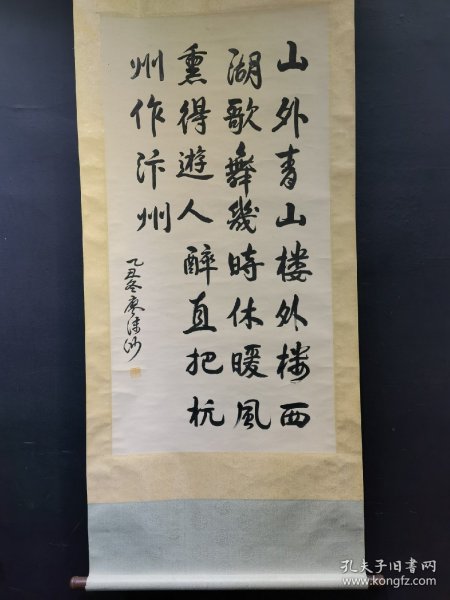 山外青山楼外楼西
湖歌舞幾時休暖風
熏得遊人醉直把杭
州作汴州
乙丑冬廖沫沙
孔夫子旧书网
www.kongfz.com